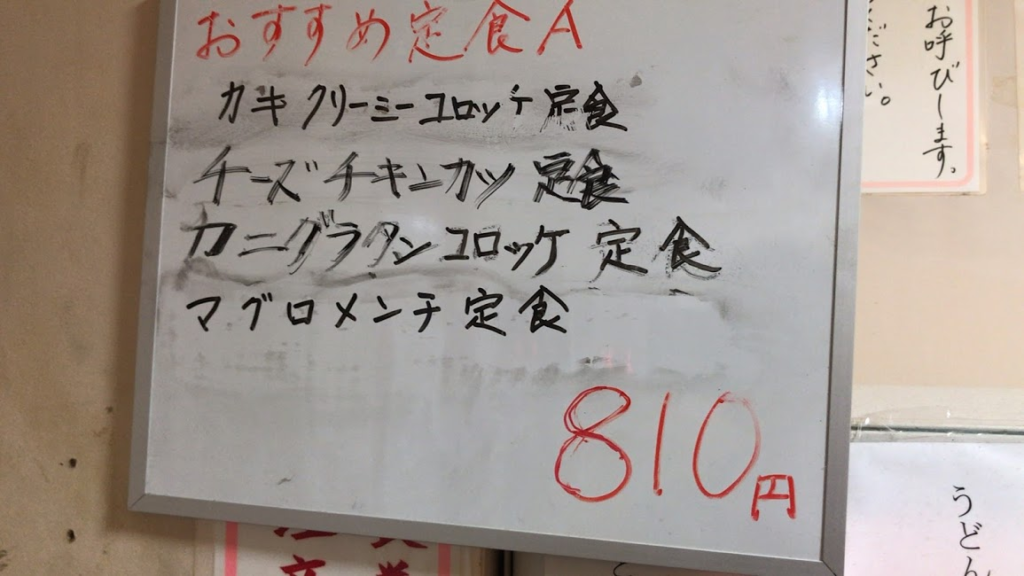 おすすめ定食A
カキクリーミーコロッケ定食
チーズチキンカツ定食
カニグラタンコロッケ定食
マグロメンチ定食
810円
お呼びします。
ください。
うどん